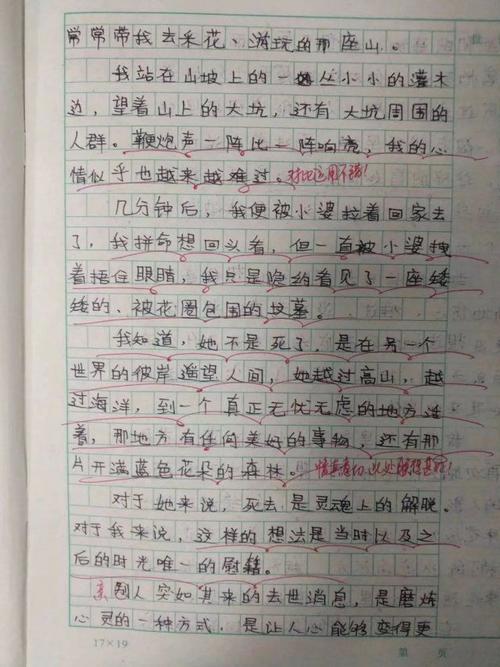 常常带我去采花、游玩的那座山。
我站在山坡上的一丛小小的灌木
边，望着山上的大坑，还有大坑周围的
人群。鞭炮声一阵比一阵响亮，我的心
情似乎也越来越难过。对比运用不错！
几分钟后，我便被小婆拉着回家去
了，我拼命想回头看，但一直被小婆拽
着捂住眼睛，我只是隐约看见了一座矮
矮的、被花圈包围的坟墓。
我知道，她不是死了，是在另一个
世界的彼岸遥望人间，她越过高山，越
过海洋，到一个真正无忧无虑的地方活
着，那地方有任何美好的事物，还有那
片开满蓝色花朵的森林。情真意切，此处
对于她来说，死去是灵魂上的解脱。
对于我来说，这样的想法是当时以及之
后的时光唯一的慰籍。
亲人突如其来的去世消息，是磨炼
心灵的一种方式，是让人心能够变得更
17×19 第 页